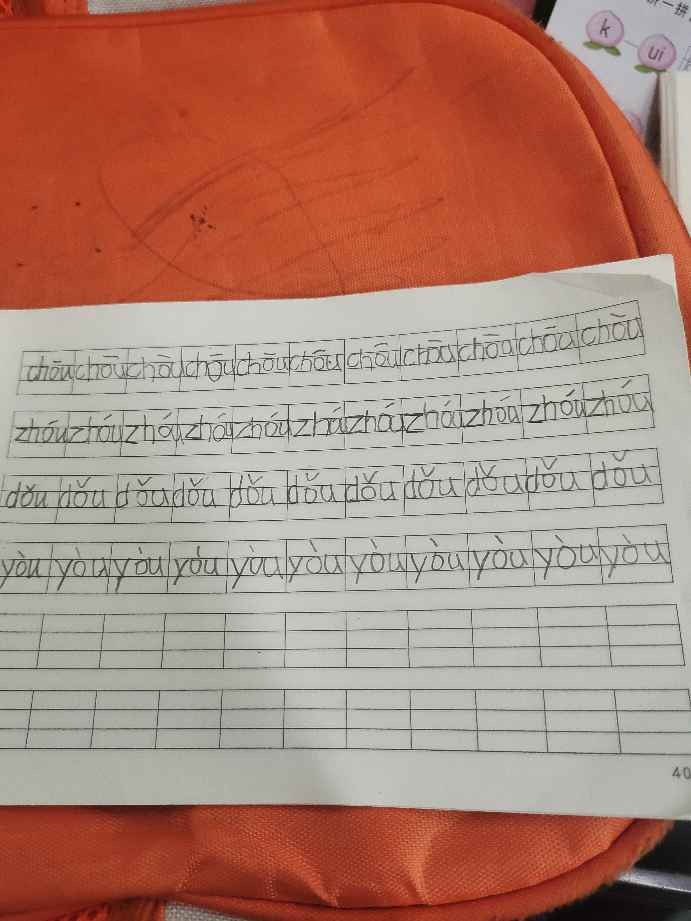 一拼
k ui
chōu chōu chōu chōu chōu chōu chōu chōu chōu chōu chōu
zhóu zhóu zhóu zhóu zhóu zhóu zhóu zhóu zhóu zhóu zhóu
dǒu dǒu dǒu dǒu dǒu dǒu dǒu dǒu dǒu dǒu dǒu
yòu yòu yòu yòu yòu yòu yòu yòu yòu yòu yòu
40